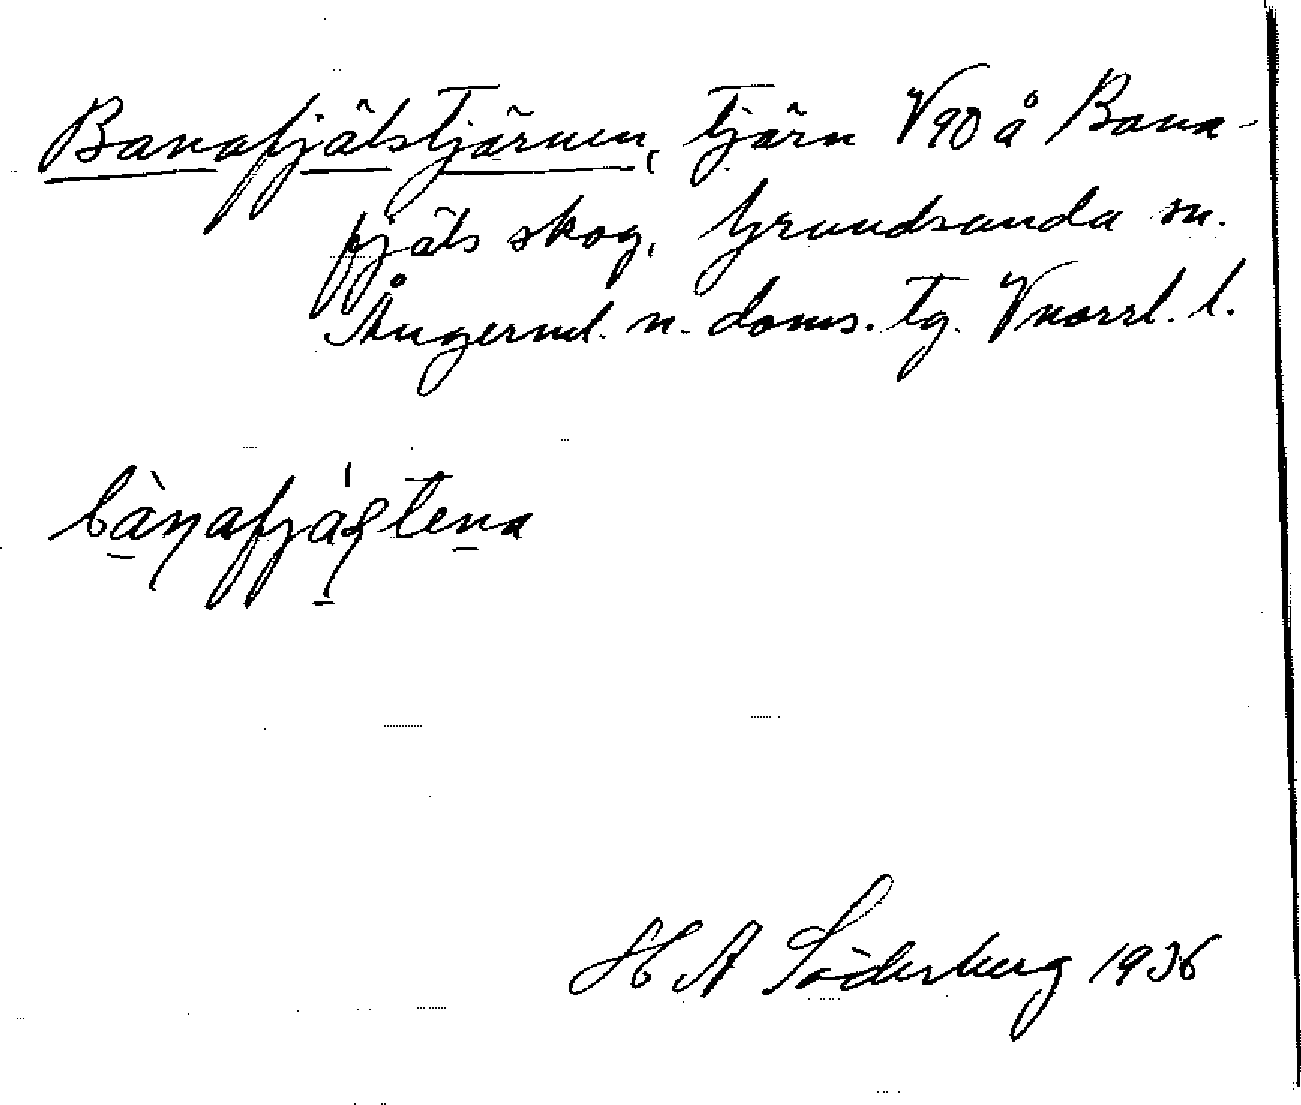 Banafjälstjärnen, tjärn V90 å Bana-
fjäls skog, Grundsunda sn.
Ångerml. n. doms. tg. Vnorrl. l.
H A Söderberg 1936